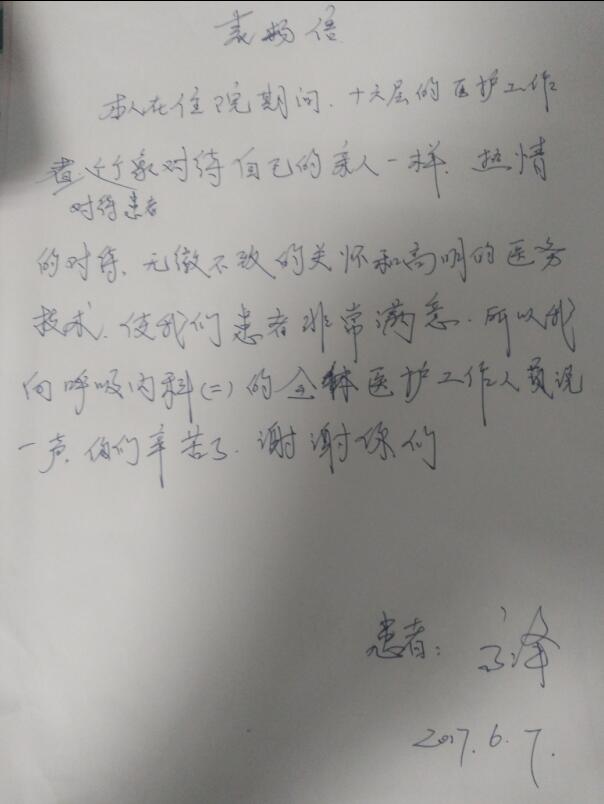 表扬信
本人在住院期间.十六层的医护工作
者.个个象对待自己的亲人一样.热情
对待患者
的对待.无微不致的关怀和高明的医务
技术.使我们患者非常满意.所以我
向呼吸内科(二)的全体医护工作人员说
一声.你们辛苦了.谢谢你们
患者:
2017.6.7.